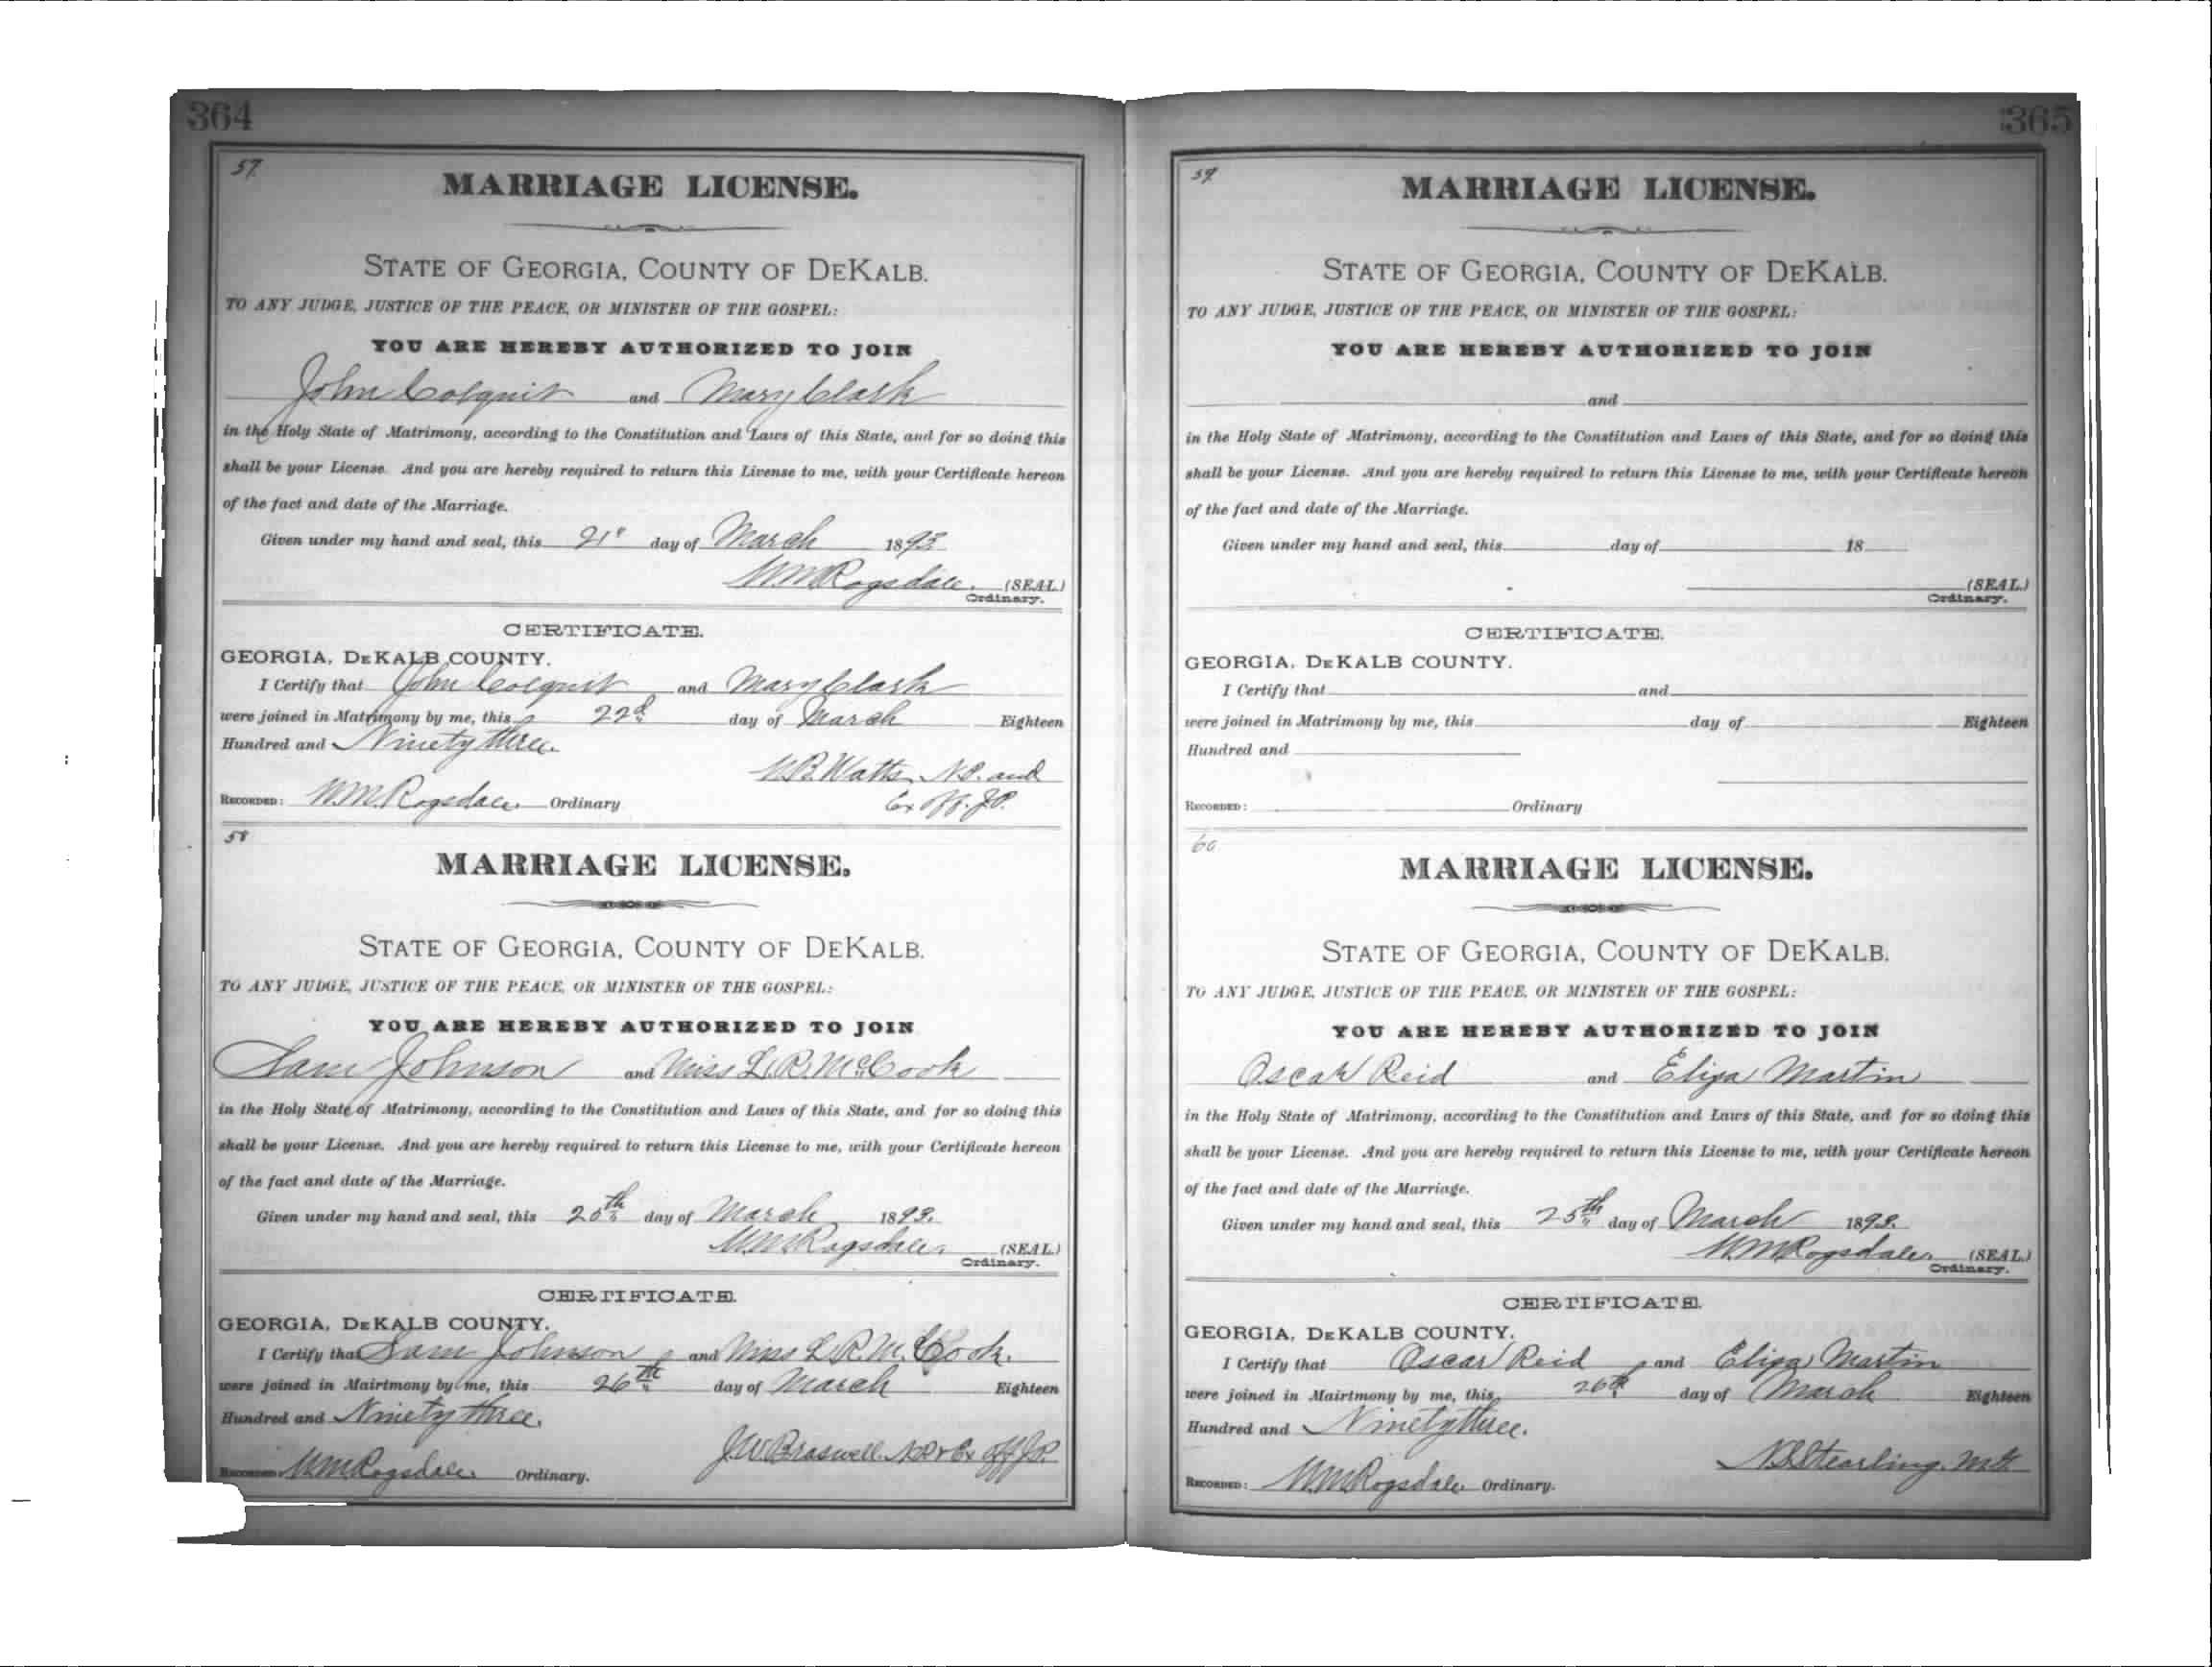 364
57
MARRIAGE LICENSE.
STATE OF GEORGIA, COUNTY OF DEKALB.
TO ANY JUDGE, JUSTICE OF THE PEACE, OR MINISTER OF THE GOSPEL:
YOU ARE HEREBY AUTHORIZED TO JOIN
John Colquit and Mary Clark
in the Holy State of Matrimony, according to the Constitution and Laws of this State, and for so doing this
shall be your License. And you are hereby required to return this License to me, with your Certificate hereon
of the fact and date of the Marriage.
Given under my hand and seal, this 21st day of March 1893
W.M. Ragsdale. (SEAL)
Ordinary.
CERTIFICATE.
GEORGIA, DEKALB COUNTY.
I Certify that John Colquit and Mary Clark
were joined in Matrimony by me, this 22d day of March Eighteen
Hundred and Ninety three.
Watts, N.P. and
RECORDED: W.M. Ragsdale Ordinary
Ex Off. J.P.
58
MARRIAGE LICENSE.
STATE OF GEORGIA, COUNTY OF DEKALB.
TO ANY JUDGE, JUSTICE OF THE PEACE, OR MINISTER OF THE GOSPEL:
YOU ARE HEREBY AUTHORIZED TO JOIN
Sam Johnson and Miss L.R. McCook
in the Holy State of Matrimony, according to the Constitution and Laws of this State, and for so doing this
shall be your License. And you are hereby required to return this License to me, with your Certificate hereon
of the fact and date of the Marriage.
Given under my hand and seal, this day of March 1893.
W.M. Ragsdale. (SEAL)
Ordinary.
CERTIFICATE.
GEORGIA, DEKALB COUNTY.
I Certify that Sam Johnson and Miss L.R. McCook.
were joined in Mairtmony by me, this 26th day of March Eighteen
Hundred and Ninety three.
J.W. Braswell. N.P. & Ex off J.P.
RECORDED: W.M. Ragsdale. Ordinary.
365
59
MARRIAGE LICENSE.
STATE OF GEORGIA, COUNTY OF DEKALB.
TO ANY JUDGE, JUSTICE OF THE PEACE, OR MINISTER OF THE GOSPEL:
YOU ARE HEREBY AUTHORIZED TO JOIN
and
in the Holy State of Matrimony, according to the Constitution and Laws of this State, and for so doing this
shall be your License. And you are hereby required to return this License to me, with your Certificate hereon
of the fact and date of the Marriage.
Given under my hand and seal, this day of 18
(SEAL)
Ordinary.
CERTIFICATE.
GEORGIA, DEKALB COUNTY.
I Certify that and
were joined in Matrimony by me, this day of Eighteen
Hundred and
RECORDED: Ordinary
60
MARRIAGE LICENSE.
STATE OF GEORGIA, COUNTY OF DEKALB.
TO ANY JUDGE, JUSTICE OF THE PEACE, OR MINISTER OF THE GOSPEL:
YOU ARE HEREBY AUTHORIZED TO JOIN
Oscar Reid and Eliza Martin
in the Holy State of Matrimony, according to the Constitution and Laws of this State, and for so doing this
shall be your License. And you are hereby required to return this License to me, with your Certificate hereon
of the fact and date of the Marriage.
Given under my hand and seal, this 25th day of March 1893.
W.M. Ragsdale. (SEAL)
Ordinary.
CERTIFICATE.
GEORGIA, DEKALB COUNTY.
I Certify that Oscar Reid and Eliza Martin
were joined in Mairtmony by me, this 26th day of March Eighteen
Hundred and Ninety three.
Stearling.
RECORDED: W.M. Ragsdale. Ordinary.